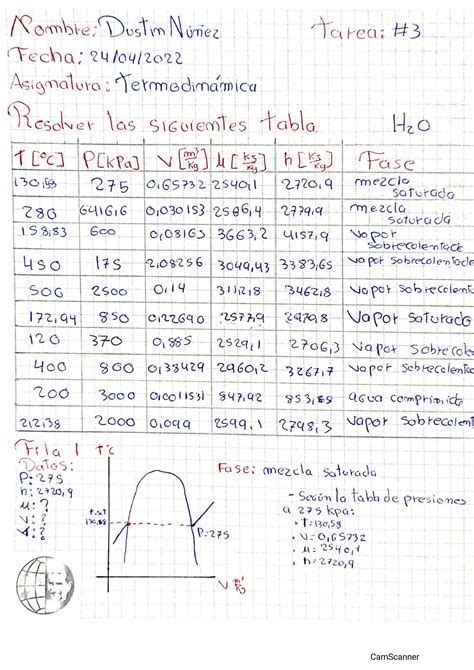 Nombre: Dustin Núñez Tarea: #3
Fecha: 24/04/2022
Asignatura: Termodinámica
Resolver las siguientes tabla. H2O
T [°C] P[kPa] V [m³/kg] u [kJ/kg] h [kJ/kg] Fase
130,58 275 0,65732 2540,1 2720,9 mezcla saturada
280 6416,6 0,030153 2586,4 2779,9 mezcla saturada
158,83 600 0,08163 3663,2 4157,9 Vapor sobrecalentado
450 175 2,08256 3049,43 3383,65 Vapor sobrecalent
500 2500 0,14 3112,8 3462,8 Vapor sobrecalent
172,94 850 0,22690 2577,9 2979,8 Vapor saturado
120 370 0,885 2529,1 2706,3 Vapor sobrecale
400 800 0,38429 2960,2 3267,7 Vapor sobrecalent
200 3000 0,0011531 847,92 853,88 agua comprimida
212,38 2000 0,099 2599,1 2798,3 Vapor sobrecalent
Fila 1
Datos:
P: 275
h: 2720,9
u: ?
v: ?
T°c
130,58
P=275
V m³/kg
Fase: mezcla saturada
- Según la tabla de presiones
a 275 kpa:
• t=130,58
• v: 0,65732
• u= 2540,1
• h= 2720,9
CamScanner